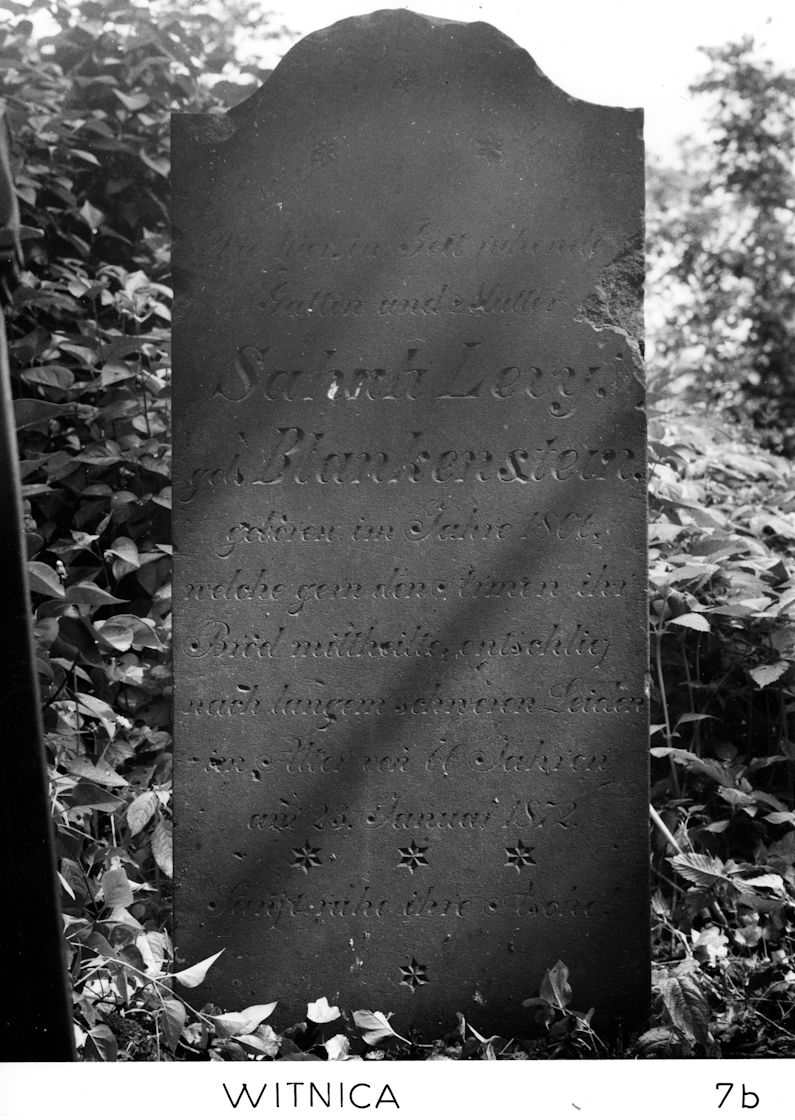 Die hier in Gott ruhende
Gattin und Mutter
Sahrah Levy,
geb. Blankenstein.
geboren im Jahre 1806,
welche gern den Armen ihr
Brod mittheilte, entschlief
nach langem schweren Leiden
im Alter von 66 Jahren
am 23. Januar 1872.
Sanft ruhe ihre Asche!
WITNICA 7b